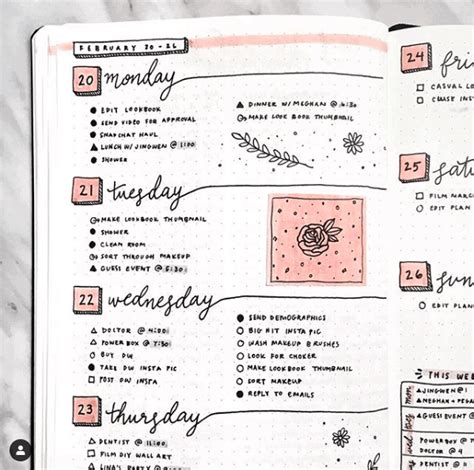 FEBRUARY 20-26
20 monday
EDIT LOOKBOOK
SEND VIDEO FOR APPROVAL
SNAPCHAT HAUL
LUNCH W/JINGWEN @ 1:00
SHOWER
DINNER W/MEGHAN @ 6:30
MAKE LOOK BOOK THUMBNAIL
21 tuesday
MAKE LOOKBOOK THUMBNAIL
SHOWER
CLEAN ROOM
SORT THROUGH MAKEUP
GUEST EVENT @ 5:30
22 wednesday
DOCTOR @ 4:00
POWER BOX @ 7:30
BUY DW
TAKE DW INSTA PIC
POST DW INSTA
SEND DEMOGRAPHICS
BIG HIT INSTA PIC
WASH MAKEUP BRUSHES
LOOK FOR CHOKER
MAKE LOOKBOOK THUMBNAIL
SORT MAKEUP
REPLY TO EMAILS
23 thursday
DENTIST @ 11:00
FILM DIY WALL ART
LINA'S PARTY @
24 fri
CASUAL LO
CLOSET INS
25 satu
FILM MARC
EDIT PLAN
26 sun
EDIT PLAN
THIS WE
mon
JINGWEN @ 1
MEGHAN + PEGA
tues
GUEST EVENT @
wed
POWERBOX @ 7
DOCTOR @ 4
DENTIST @ 11